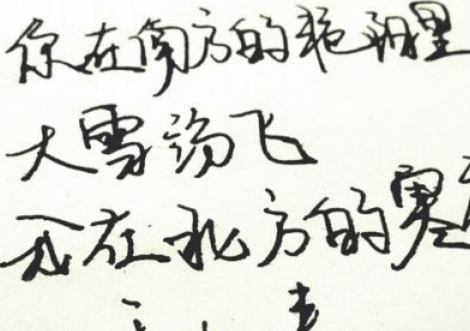 你在南方的艳阳里
大雪纷飞
我在北方的寒